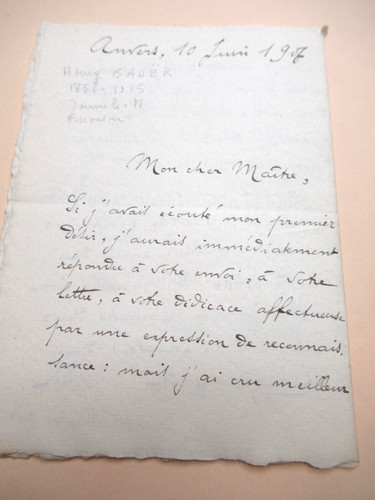 Anvers, 10 Juin 1907
Henry BAUËR
1851-1915
Mon cher Maître,
Si j'avais écouté mon premier
désir, j'aurais immédiatement
répondu à votre envoi, à votre
lettre, à votre dédicace affectueuse
par une expression de reconnais-
sance : mais j'ai cru meilleur